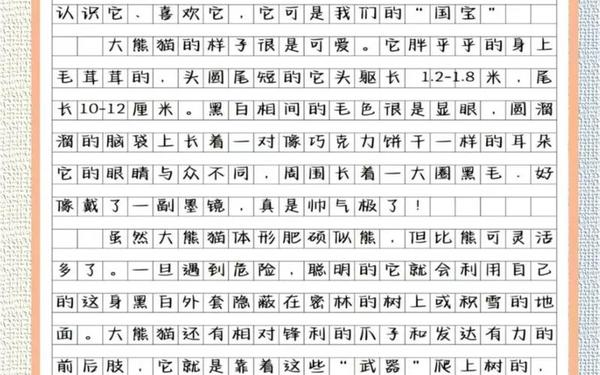 认识它、喜欢它，它可是我们的“国宝”
大熊猫的样子很是可爱。它胖乎乎的身上
毛茸茸的，头圆尾短的它头躯长 1.2-1.8 米，尾
长10-12厘米。黑白相间的毛色很是显眼，圆溜
溜的脑袋上长着一对像巧克力饼干一样的耳朵
它的眼睛与众不同，周围长着一大圈黑毛，好
像戴了一副墨镜，真是帅气极了！
虽然大熊猫体形肥硕似熊，但比熊可灵活
多了。一旦遇到危险，聪明的它就会利用自己
的这身黑白外套隐蔽在密林的树上或积雪的地
面。大熊猫还有相对锋利的爪子和发达有力的
前后肢，它就是靠着这些“武器”爬上树的，